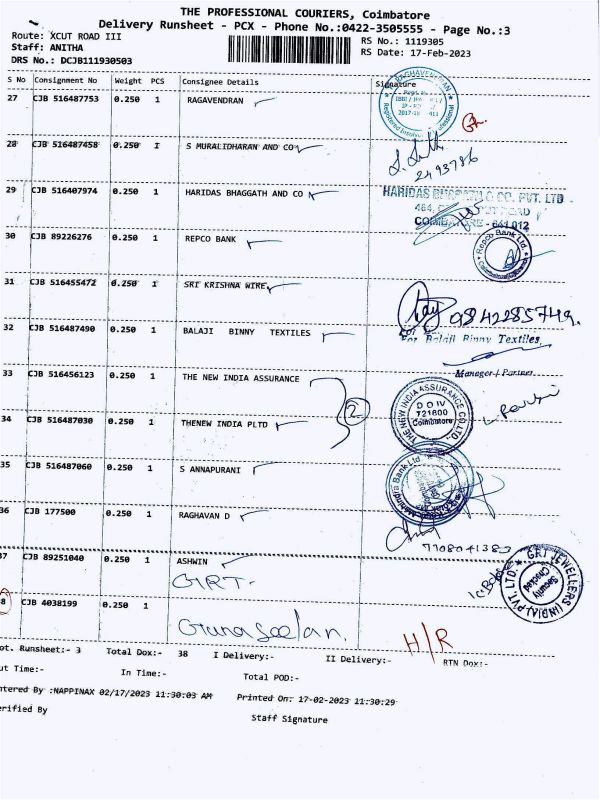 THE PROFESSIONAL COURIERS, Coimbatore
Delivery Runsheet - PCX - Phone No.:0422-3505555 - Page No.:3
Route: XCUT ROAD III
RS No.: 1119305
Staff: ANITHA
RS Date: 17-Feb-2023
DRS No.: DCJB111930503
S No Consignment No Weight PCS Consignee Details Signature
27 CJB 516487753 0.250 1 RAGAVENDRAN
28 CJB 516487458 0.250 1 S MURALIDHARAN AND CO
2493786
29 CJB 516407974 0.250 1 HARIDAS BHAGGATH AND CO
HARIDAS & CO. PVT. LTD
COIMBATORE - 641 012
30 CJB 89226276 0.250 1 REPCO BANK
Repco Bank Ltd.
31 CJB 516455472 0.250 1 SRI KRISHNA WIRE
9842285749.
32 CJB 516487490 0.250 1 BALAJI BINNY TEXTILES
For Balaji Binny Textiles
Manager / Partner
33 CJB 516456123 0.250 1 THE NEW INDIA ASSURANCE
2
THE NEW INDIA ASSURANCE CO. LTD.
D O IV
721600
Coimbatore
34 CJB 516487030 0.250 1 THENEW INDIA PLTD
35 CJB 516487060 0.250 1 S ANNAPURANI
36 CJB 177500 0.250 1 RAGHAVAN D
7708041380
37 CJB 89251040 0.250 1 ASHWIN
GRT.
GRT JEWELLERS (INDIA) PVT. LTD.
Security
Checked
8 CJB 4038199 0.250 1
Gunaseelan.
H/R
ot. Runsheet:- 3 Total Dox:- 38 I Delivery:- II Delivery:- RTN Dox:-
ut Time:- In Time:- Total POD:-
ntered By :NAPPINAX 02/17/2023 11:30:03 AM Printed On: 17-02-2023 11:30:29
erified By Staff Signature